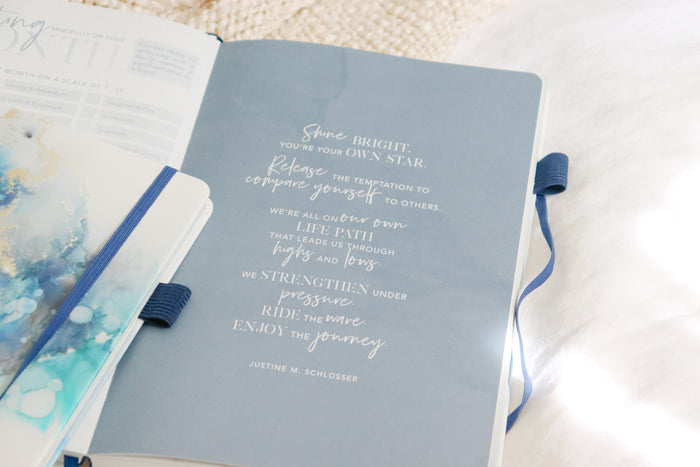 MINDFULLY ON YOUR
MONTH
MONTH ON A SCALE OF 1 -10
Shine BRIGHT.
YOU'RE YOUR OWN STAR.
Release THE TEMPTATION TO
compare yourself TO OTHERS.
WE'RE ALL ON our own
LIFE PATH
THAT LEADS US THROUGH
highs AND lows.
WE STRENGTHEN UNDER
pressure.
RIDE THE wave.
ENJOY THE journey.
JUSTINE M. SCHLOSSER